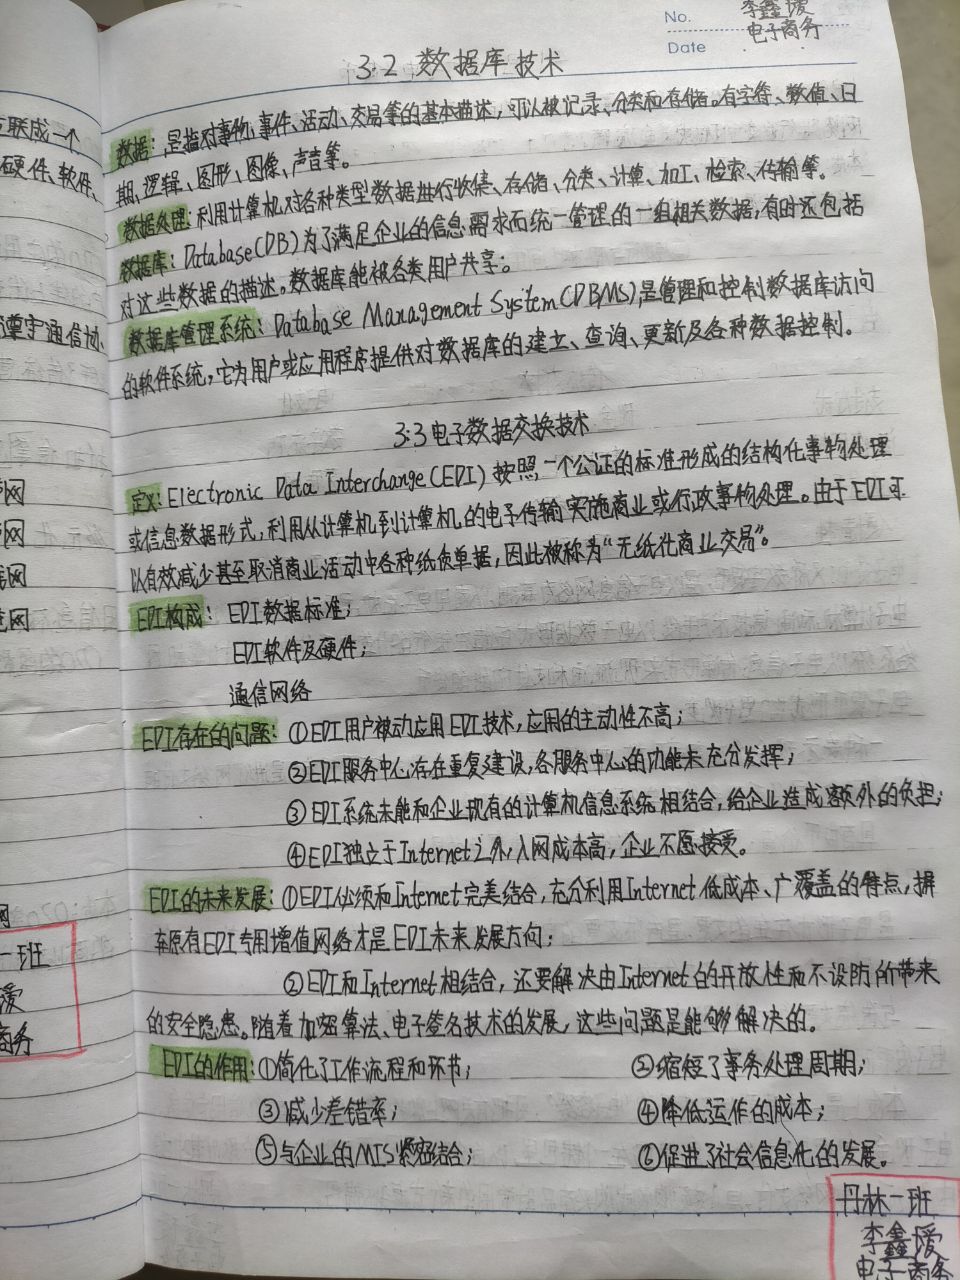 No. 李鑫瑷
电子商务
Date
3.2 数据库技术
数据：是指对事物、事件、活动、交易等的基本描述，可以被记录、分类和存储。有字符、数值、日
期、逻辑、图形、图像、声音等。
数据处理：利用计算机对各种类型数据进行收集、存储、分类、计算、加工、检索、传输等。
数据库：Database(DB)为了满足企业的信息需求而统一管理的一组相关数据，有时还包括
对这些数据的描述。数据库能被各类用户共享。
数据库管理系统：Database Management System(DBMS)是管理和控制数据库访问
的软件系统，它为用户或应用程序提供对数据库的建立、查询、更新及各种数据控制。
3.3电子数据交换技术
定义：Electronic Data Interchange(EDI) 按照一个公证的标准形成的结构化事物处理
或信息数据形式，利用从计算机到计算机的电子传输实施商业或行政事物处理。由于EDI可
以有效减少甚至取消商业活动中各种纸质单据，因此被称为“无纸化商业交易”。
EDI构成：EDI数据标准；
EDI软件及硬件；
通信网络
EDI存在的问题：①EDI用户被动应用EDI技术，应用的主动性不高；
②EDI服务中心存在重复建设，各服务中心的功能未充分发挥；
③EDI系统未能和企业现有的计算机信息系统相结合，给企业造成额外的负担；
④EDI独立于Internet之外，入网成本高，企业不愿接受。
EDI的未来发展：①EDI必须和Internet完美结合，充分利用Internet低成本、广覆盖的特点，摒
弃原有EDI专用增值网络才是EDI未来发展方向；
②EDI和Internet相结合，还要解决由Internet的开放性和不设防所带来
的安全隐患。随着加密算法、电子签名技术的发展，这些问题是能够解决的。
EDI的作用：①简化了工作流程和环节； ②缩短了事务处理周期；
③减少差错率； ④降低运作的成本；
⑤与企业的MIS紧密结合； ⑥促进了社会信息化的发展。
丹林一班
李鑫瑷
电子商务
联成一个
硬件、软件、
遵守通信协
网
网
网
网
网
一班
瑷
商务